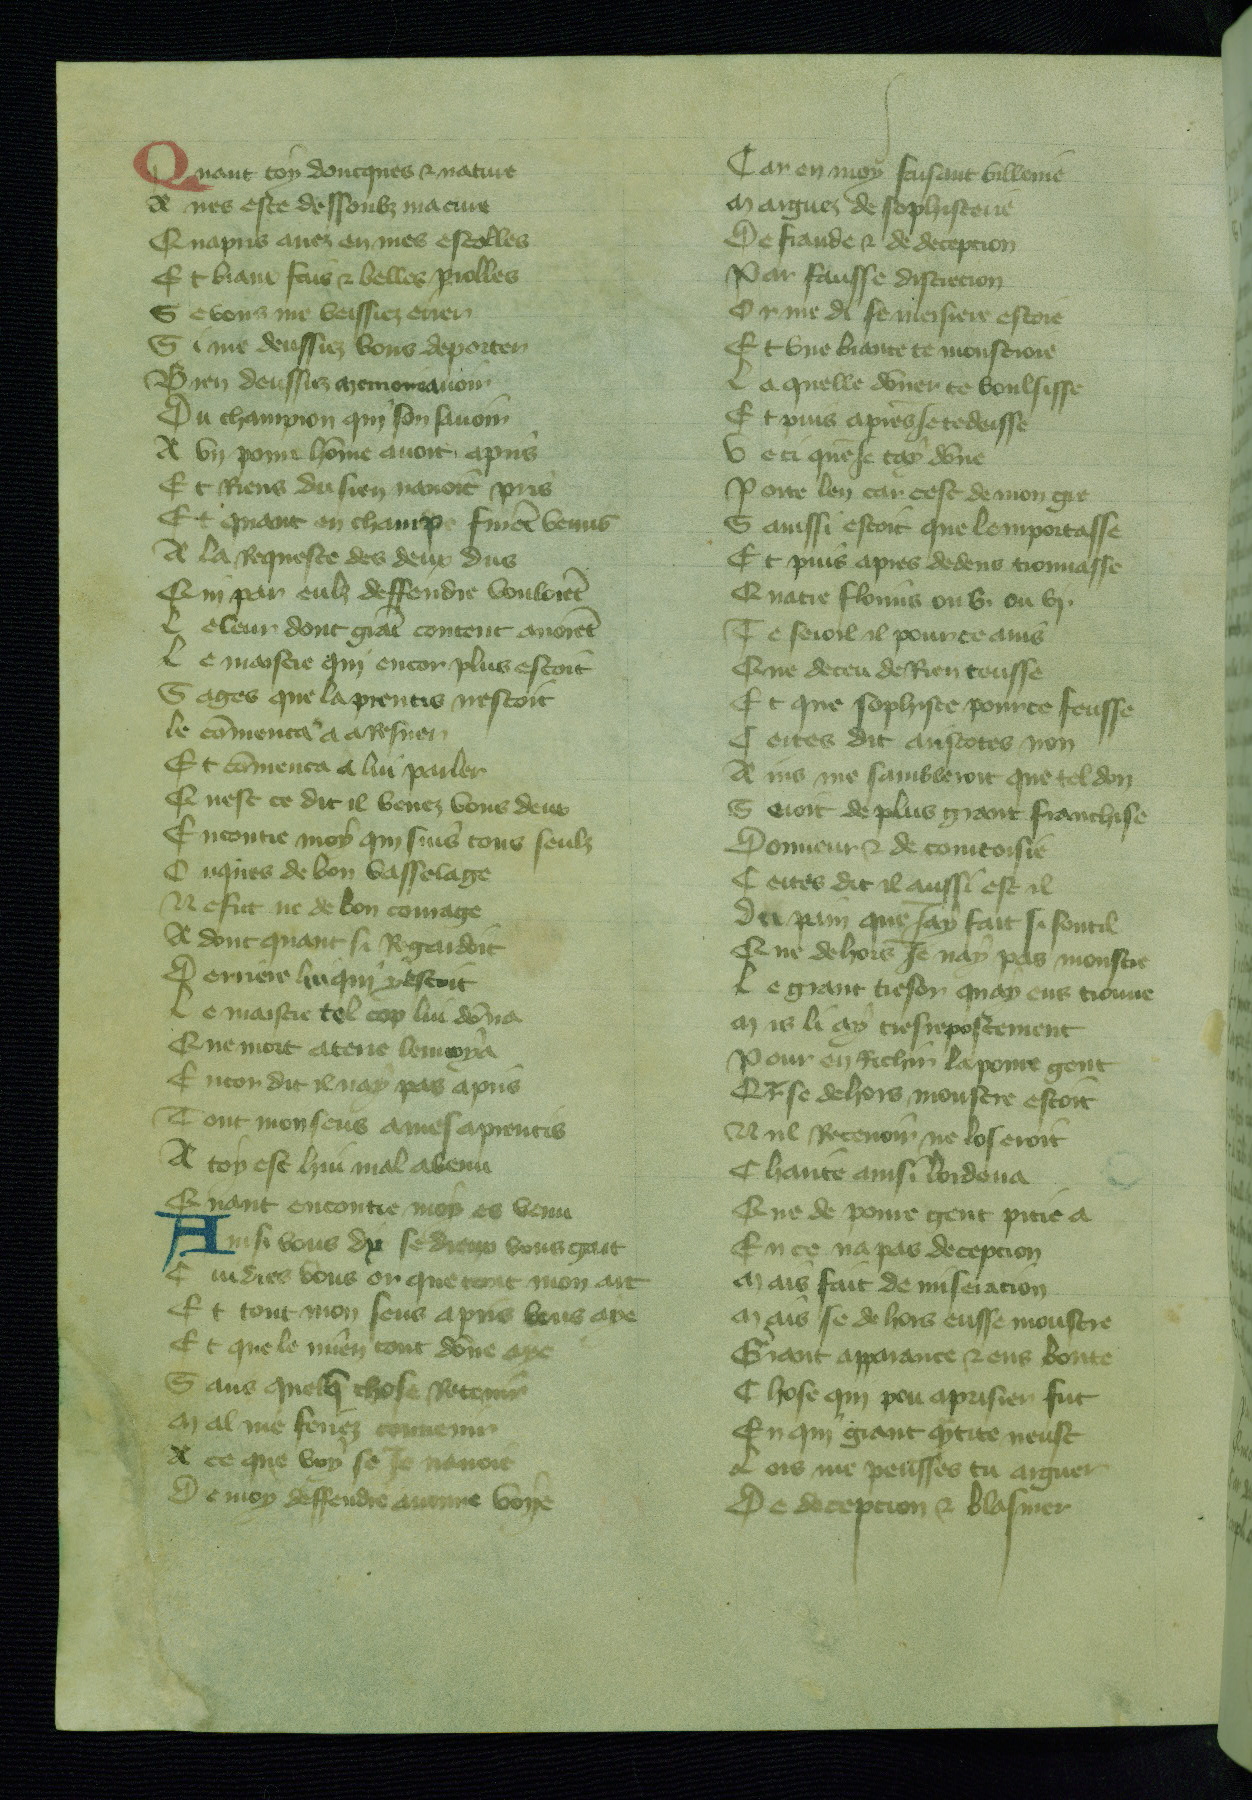 Quant toy doncques & nature
A ues este dessoubz ma cure
Quapris auez en mes escolles
Et biaux fais & belles piolles
Se vous me veissiez errer
Si me deussiez vous deporter
Bien deussiez memoire auoir
Du champion qui son sauoir
A vn poure hõme auoit apris
Et Riens du sien nauoit pris
Et quant en champ furẽt venus
A la Requeste des deux dus
Qui par eulz deffendre vouloiẽt
Leleur dont grãt content auoiẽt
Le maistre qui encor plus estoit
Sages que laprentis nestoit
le cõmenca a aresner
Et cõmenca a lui parler
Quest ce dit il venez vous deux
Encontre moy qui suis tous seulz
Onques de bon vasselage
Ne fut ne de bon courage
Adont quant si Regardoit
Derriere lui qui y estoit
Le maistre tel cop lui dõna
Que mort a terre lenuoya
Encor dit il nay pas apris
Tout mon sens a mes aprentis
A toy est hui mal auenu
Quant encontre moy es venu
Ainsi vous dy se dieux vous gart
Cuidies vous or que tout mon art
Et tout mon sens apris vous aye
Et que le mien tout dõne aye
Sans quelq̃ chose Retenir
Mal me feriez conuenir
A ce que voy se Je nauoie
De moy deffendre aucune voye
Car en moy faisant villenie
Marguez de sophisterie
De fraude & de deception
Par fausse discrecion
Or me di se merciere estoie
Et vne biaute te monstroie
Laquelle dõner te voulsisse
Et puis apres Je te deisse
Veci que Je tay dõne
Porte len car cest de mon gre
Saussi estoit que lemportasse
Et puis apres dedens trouuasse
Quatre flourins ou v. ou vj.
Te seroit il pour ce auis
Que deceu de Rien teusse
Et que sophiste pour ce feusse
Certes dit aristotes non
Ains me sambleroit que tel don
Seroit de plus grant franchise
Donneur & de courtoisie
Certes dit il aussi est il
Du pain que Jay fait si soutil
Que dehors Je nay pas monstre
Le grant tresor quay ens trouue
Mis li ay tres repostement
Pour en Richir la poure gent
Q̃ se dehors monstre estoit
Nul Receuoir ne loseroit
Charite ainsi lordena
Que de poure gent pitie a
En ce na pas deception
Mais fait de miseracion
Mais se dehors eusse monstre
Grant apparance & ens bonte
Chose qui peu a prisier fut
En qui grant q̃tite neust
Lors me peusses tu arguer
De deception & blasmer